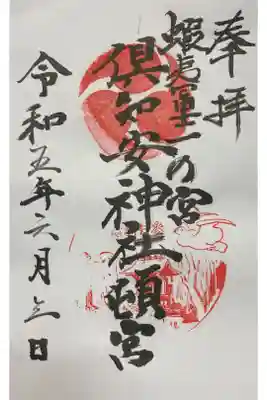 奉拝
蝦夷富士一の宮
倶知安神社頓宮
令和五年六月三日